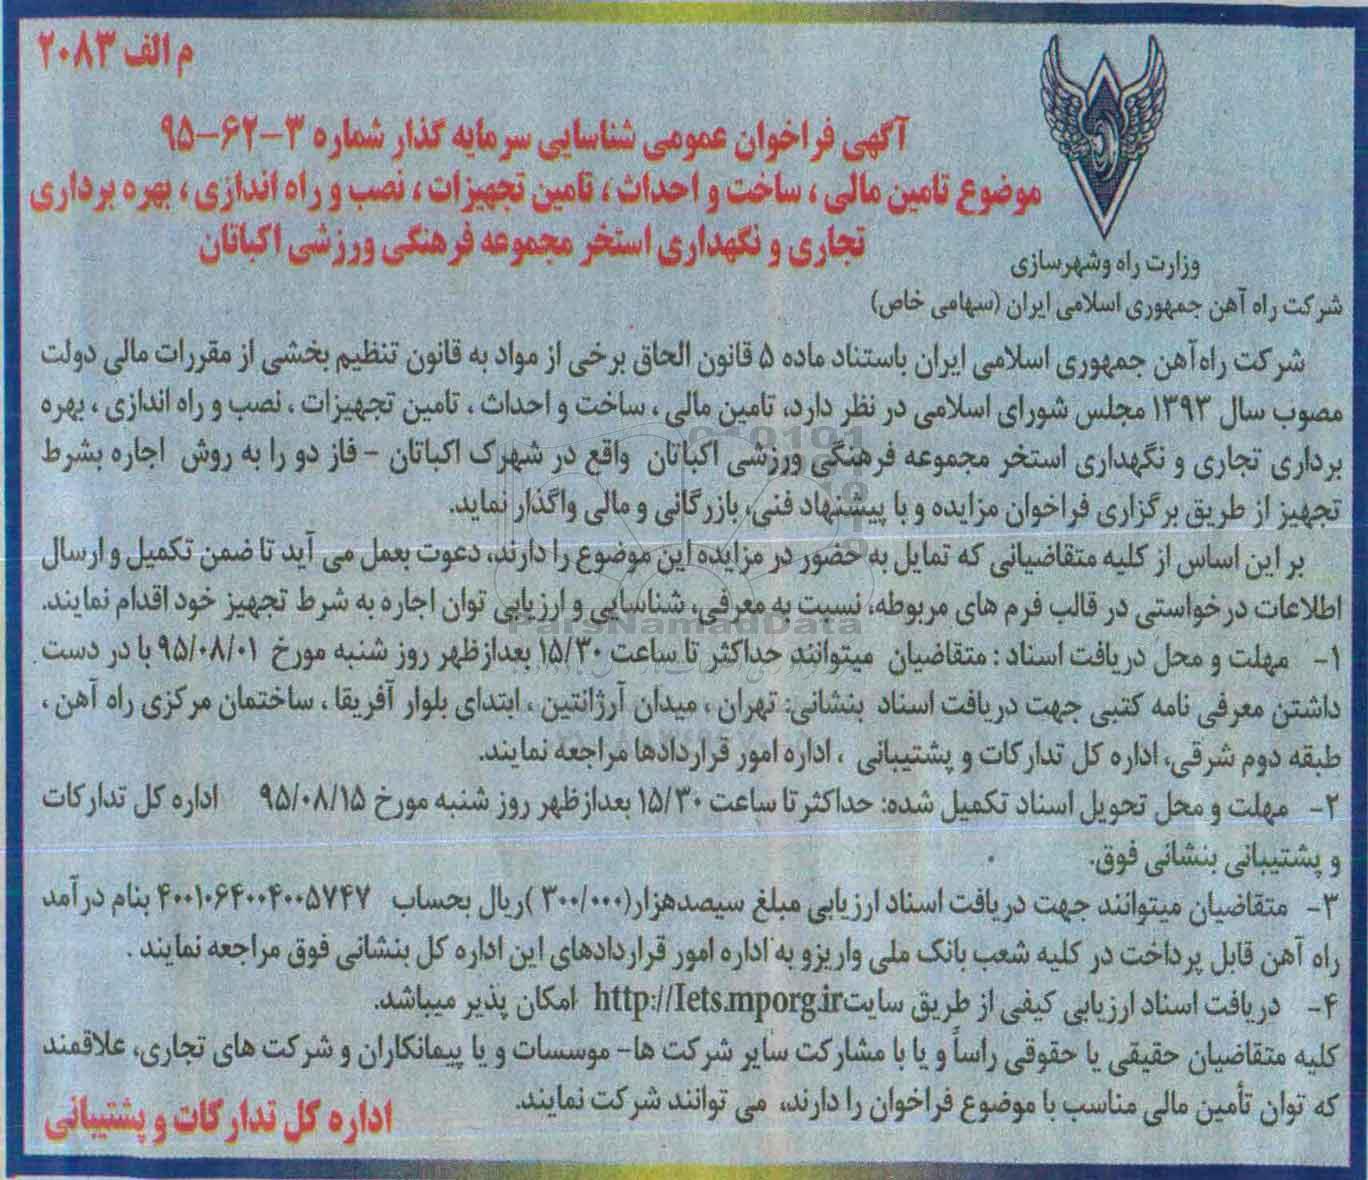 م الف ۲۰۸۳
آگهی فراخوان عمومی شناسایی سرمایه گذار شماره ۳-۶۲-۹۵
موضوع تامین مالی ، ساخت و احداث ، تامین تجهیزات ، نصب و راه اندازی ، بهره برداری
تجاری و نگهداری استخر مجموعه فرهنگی ورزشی اکباتان
وزارت راه وشهرسازی
شرکت راه آهن جمهوری اسلامی ایران (سهامی خاص)
شرکت راه‌آهن جمهوری اسلامی ایران باستناد ماده ۵ قانون الحاق برخی از مواد به قانون تنظیم بخشی از مقررات مالی دولت
مصوب سال ۱۳۹۳ مجلس شورای اسلامی در نظر دارد، تامین مالی ، ساخت و احداث ، تامین تجهیزات ، نصب و راه اندازی ، بهره
برداری تجاری و نگهداری استخر مجموعه فرهنگی ورزشی اکباتان واقع در شهرک اکباتان - فاز دو را به روش اجاره بشرط
تجهیز از طریق برگزاری فراخوان مزایده و با پیشنهاد فنی، بازرگانی و مالی واگذار نماید.
بر این اساس از کلیه متقاضیانی که تمایل به حضور در مزایده این موضوع را دارند، دعوت بعمل می آید تا ضمن تکمیل و ارسال
اطلاعات درخواستی در قالب فرم های مربوطه، نسبت به معرفی، شناسایی و ارزیابی توان اجاره به شرط تجهیز خود اقدام نمایند.
ParsNamadData
۱- مهلت و محل دریافت اسناد : متقاضیان میتوانند حداکثر تا ساعت ۱۵/۳۰ بعدازظهر روز شنبه مورخ ۹۵/۰۸/۰۱ با در دست
داشتن معرفی نامه کتبی جهت دریافت اسناد بنشانی: تهران ، میدان آرژانتین ، ابتدای بلوار آفریقا ، ساختمان مرکزی راه آهن ،
طبقه دوم شرقی، اداره کل تدارکات و پشتیبانی ، اداره امور قراردادها مراجعه نمایند.
۲- مهلت و محل تحویل اسناد تکمیل شده: حداکثر تا ساعت ۱۵/۳۰ بعدازظهر روز شنبه مورخ ۹۵/۰۸/۱۵ اداره کل تدارکات
و پشتیبانی بنشانی فوق.
۳- متقاضیان میتوانند جهت دریافت اسناد ارزیابی مبلغ سیصدهزار(۳۰۰/۰۰۰ )ریال بحساب ۴۰۰۱۰۶۴۰۰۴۰۰۵۷۴۷ بنام درآمد
راه آهن قابل پرداخت در کلیه شعب بانک ملی واریزو به اداره امور قراردادهای این اداره کل بنشانی فوق مراجعه نمایند .
۴- دریافت اسناد ارزیابی کیفی از طریق سایتhttp://Iets.mporg.ir امکان پذیر میباشد.
کلیه متقاضیان حقیقی یا حقوقی راساً و یا با مشارکت سایر شرکت ها- موسسات و یا پیمانکاران و شرکت های تجاری، علاقمند
که توان تأمین مالی مناسب با موضوع فراخوان را دارند، می توانند شرکت نمایند.
اداره کل تدارکات و پشتیبانی